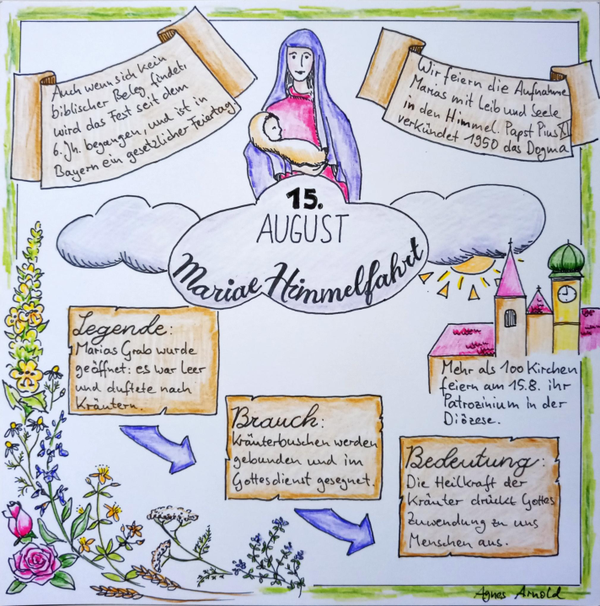 Auch wenn sich kein
biblischer Beleg findet:
wird das Fest seit dem
6. Jh. begangen, und ist in
Bayern ein gesetzlicher Feiertag
Wir feiern die Aufnahme
Marias mit Leib und Seele
in den Himmel. Papst Pius XII
verkündet 1950 das Dogma
15.
AUGUST
Mariae Himmelfahrt
Legende:
Marias Grab wurde
geöffnet: es war leer
und duftete nach
Kräutern.
Mehr als 100 Kirchen
feiern am 15.8. ihr
Patrozinium in der
Diözese.
Brauch:
Kräuterbuschen werden
gebunden und im
Gottesdienst gesegnet.
Bedeutung:
Die Heilkraft der
Kräuter drückt Gottes
Zuwendung zu uns
Menschen aus.
Agnes Arnold